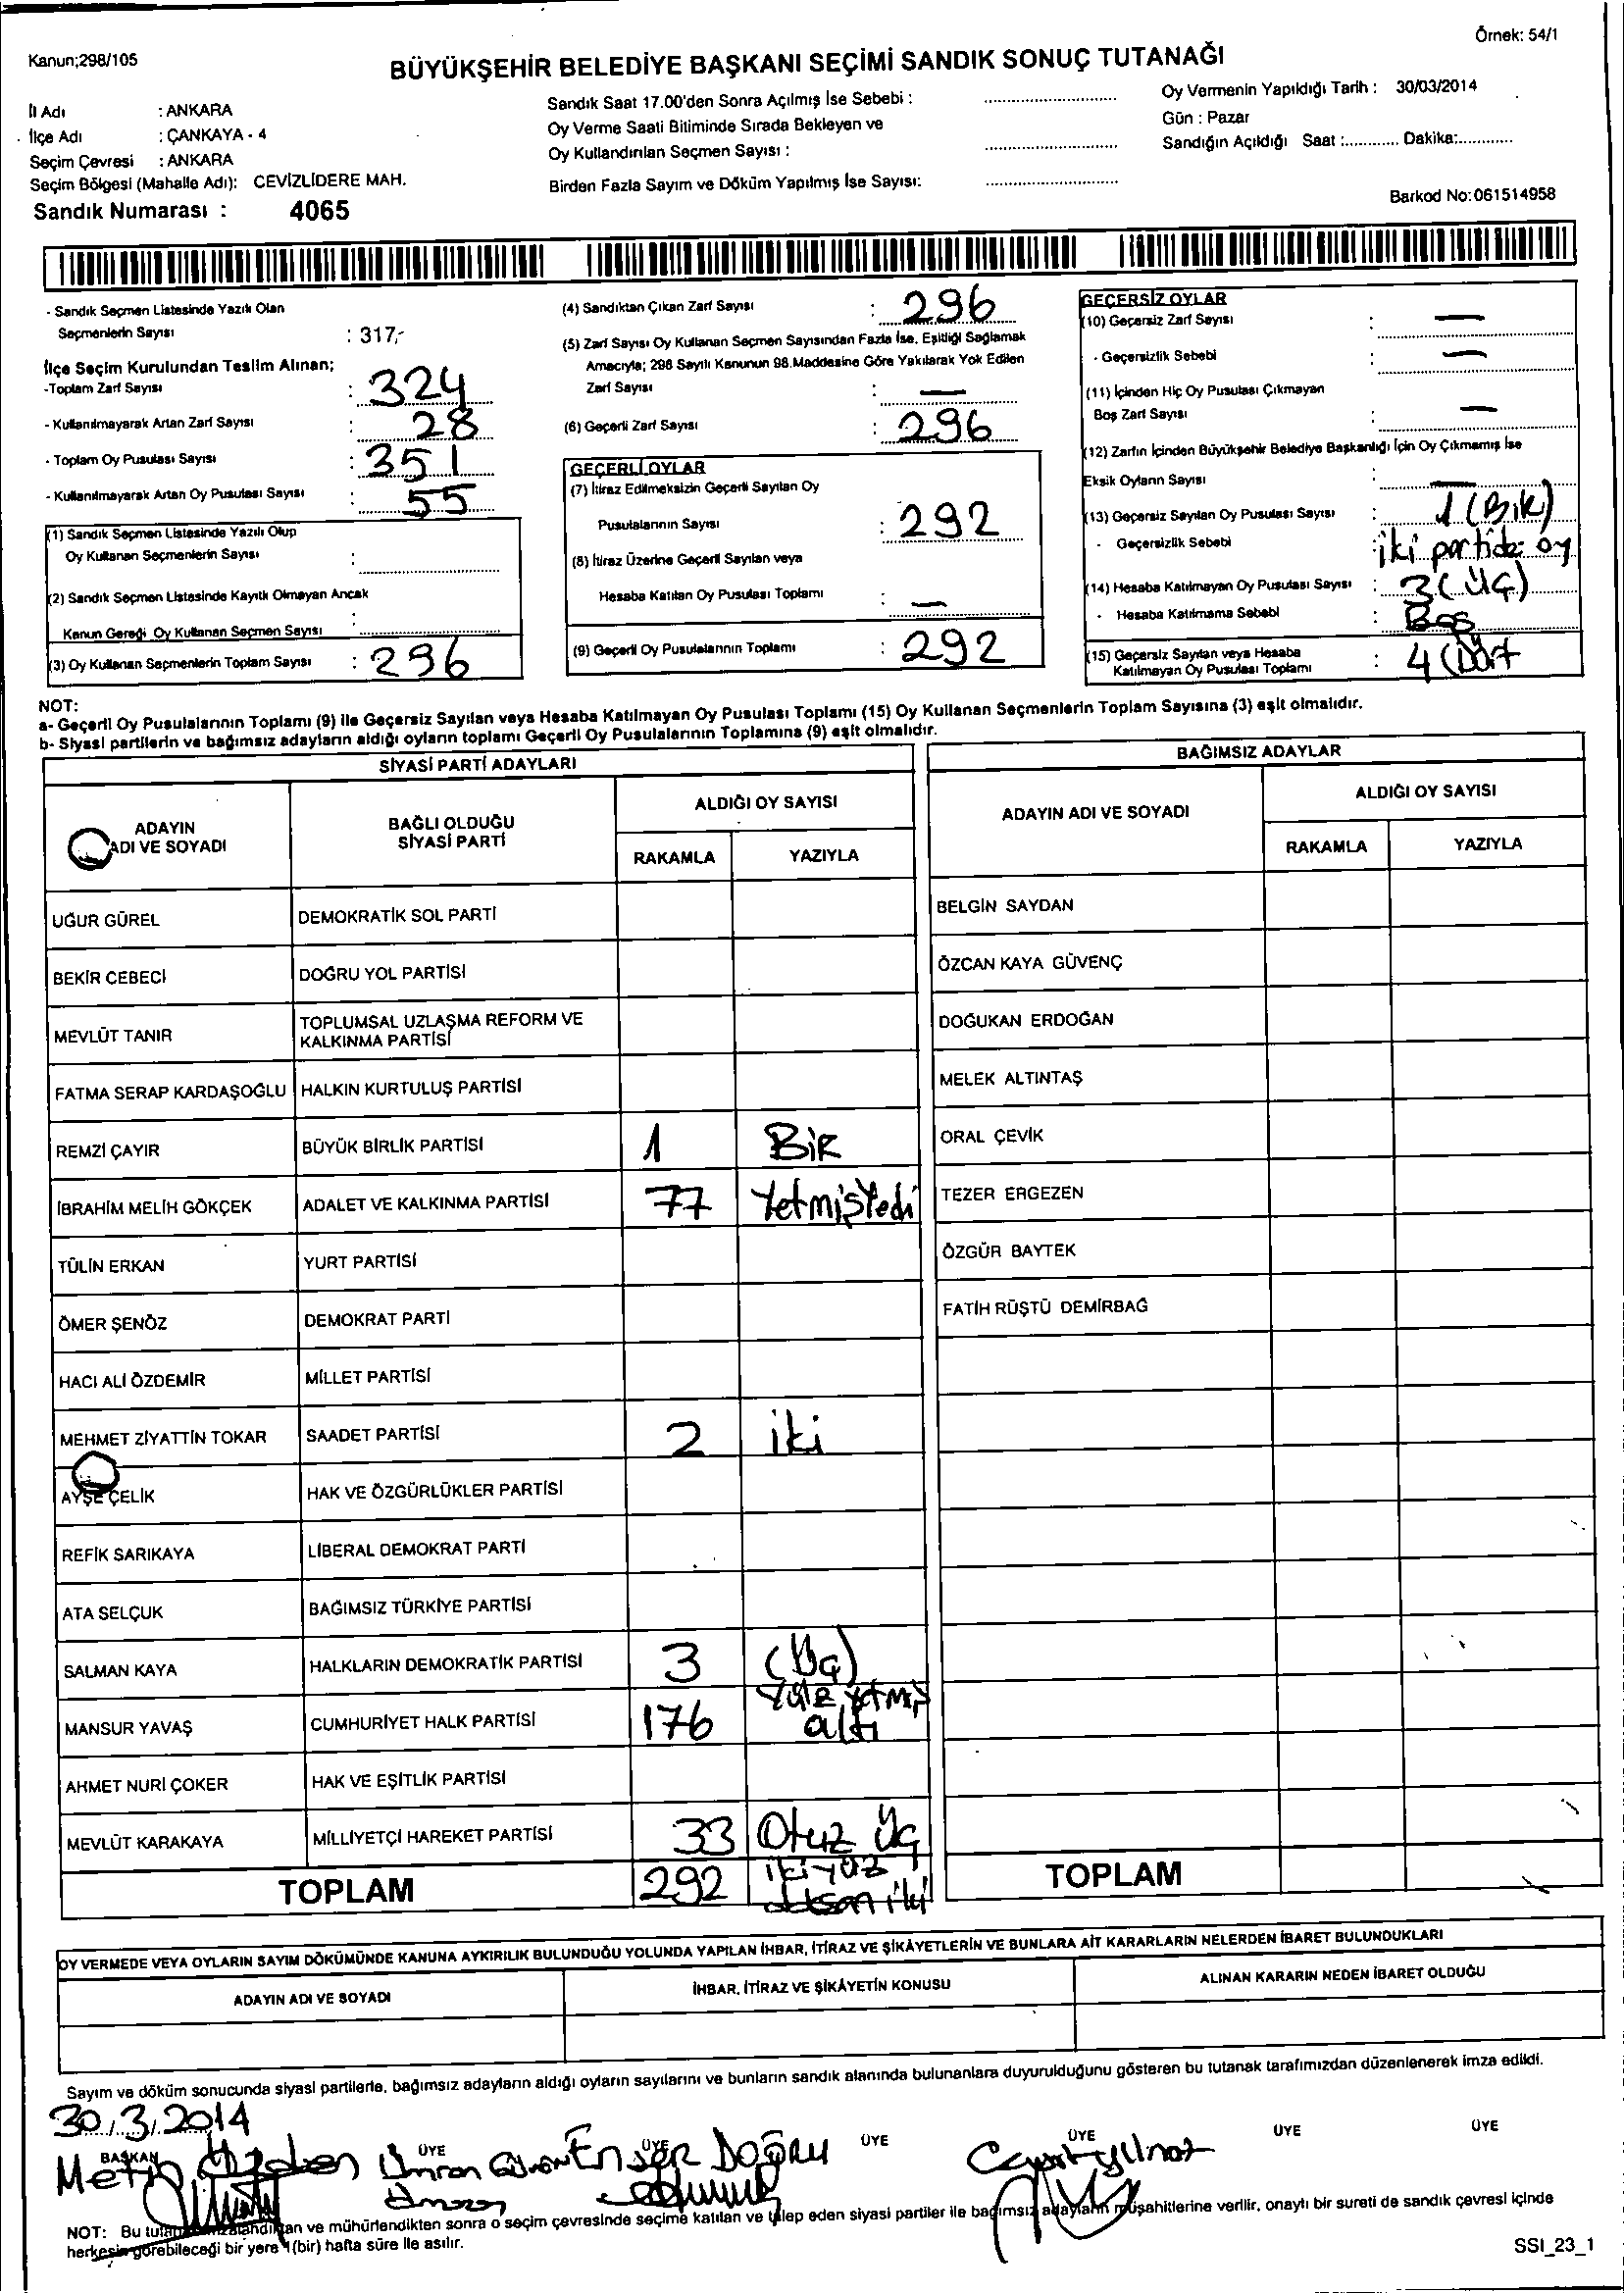 Örnek: 54/1
Kanun;298/105
BÜYÜKŞEHİR BELEDİYE BAŞKANI SEÇİMİ SANDIK SONUÇ TUTANAĞI
İl Adı : ANKARA
İlçe Adı : ÇANKAYA - 4
Seçim Çevresi : ANKARA
Seçim Bölgesi (Mahalle Adı): CEVİZLİDERE MAH.
Sandık Numarası : 4065
Sandık Saat 17.00'den Sonra Açılmış İse Sebebi :
Oy Verme Saati Bitiminde Sırada Bekleyen ve
Oy Kullandırılan Seçmen Sayısı :
Birden Fazla Sayım ve Döküm Yapılmış İse Sayısı:
Oy Vermenin Yapıldığı Tarih : 30/03/2014
Gün : Pazar
Sandığın Açıldığı Saat :............ Dakika:............
Barkod No:061514958
- Sandık Seçmen Listesinde Yazılı Olan
Seçmenlerin Sayısı : 317,-
İlçe Seçim Kurulundan Teslim Alınan;
-Toplam Zarf Sayısı : 324
- Kullanılmayarak Artan Zarf Sayısı : 28
- Toplam Oy Pusulası Sayısı : 351
- Kullanılmayarak Artan Oy Pusulası Sayısı : 55
(1) Sandık Seçmen Listesinde Yazılı Olup
Oy Kullanan Seçmenlerin Sayısı :
(2) Sandık Seçmen Listesinde Kayıtlı Olmayan Ancak
Kanun Gereği Oy Kullanan Seçmen Sayısı :
(3) Oy Kullanan Seçmenlerin Toplam Sayısı : 296
(4) Sandıktan Çıkan Zarf Sayısı : 296
(5) Zarf Sayısı Oy Kullanan Seçmen Sayısından Fazla İse, Eşitliği Sağlamak
Amacıyla; 298 Sayılı Kanunun 98.Maddesine Göre Yakılarak Yok Edilen
Zarf Sayısı : —
(6) Geçerli Zarf Sayısı : 296
GEÇERLİ OYLAR
(7) İtiraz Edilmeksizin Geçerli Sayılan Oy
Pusulalarının Sayısı : 292
(8) İtiraz Üzerine Geçerli Sayılan veya
Hesaba Katılan Oy Pusulası Toplamı : —
(9) Geçerli Oy Pusulalarının Toplamı : 292
GEÇERSİZ OYLAR
(10) Geçersiz Zarf Sayısı : —
- Geçersizlik Sebebi : —
(11) İçinden Hiç Oy Pusulası Çıkmayan
Boş Zarf Sayısı : —
(12) Zarfın İçinden Büyükşehir Belediye Başkanlığı İçin Oy Çıkmamış İse
Eksik Oyların Sayısı : —
(13) Geçersiz Sayılan Oy Pusulası Sayısı : 1 (Bir)
- Geçersizlik Sebebi : iki partide oy
(14) Hesaba Katılmayan Oy Pusulası Sayısı : 3 (ÜÇ)
- Hesaba Katılmama Sebebi : Boş
(15) Geçersiz Sayılan veya Hesaba
Katılmayan Oy Pusulası Toplamı : 4 (Dört
NOT:
a- Geçerli Oy Pusulalarının Toplamı (9) ile Geçersiz Sayılan veya Hesaba Katılmayan Oy Pusulası Toplamı (15) Oy Kullanan Seçmenlerin Toplam Sayısına (3) eşit olmalıdır.
b- Siyasi partilerin ve bağımsız adayların aldığı oyların toplamı Geçerli Oy Pusulalarının Toplamına (9) eşit olmalıdır.
SİYASİ PARTİ ADAYLARI
ADAYIN ADI VE SOYADI
BAĞLI OLDUĞU SİYASİ PARTİ
ALDIĞI OY SAYISI
RAKAMLA YAZIYLA
UĞUR GÜREL DEMOKRATİK SOL PARTİ
BEKİR CEBECİ DOĞRU YOL PARTİSİ
MEVLÜT TANIR TOPLUMSAL UZLAŞMA REFORM VE KALKINMA PARTİSİ
FATMA SERAP KARDAŞOĞLU HALKIN KURTULUŞ PARTİSİ
REMZİ ÇAYIR BÜYÜK BİRLİK PARTİSİ 1 BİR
İBRAHİM MELİH GÖKÇEK ADALET VE KALKINMA PARTİSİ 77 YetmişYedi
TÜLİN ERKAN YURT PARTİSİ
ÖMER ŞENÖZ DEMOKRAT PARTİ
HACI ALİ ÖZDEMİR MİLLET PARTİSİ
MEHMET ZİYATTİN TOKAR SAADET PARTİSİ 2 iki
AYŞE ÇELİK HAK VE ÖZGÜRLÜKLER PARTİSİ
REFİK SARIKAYA LİBERAL DEMOKRAT PARTİ
ATA SELÇUK BAĞIMSIZ TÜRKİYE PARTİSİ
SALMAN KAYA HALKLARIN DEMOKRATİK PARTİSİ 3 (Üç)
MANSUR YAVAŞ CUMHURİYET HALK PARTİSİ 176 Yüz yetmiş altı
AHMET NURİ ÇOKER HAK VE EŞİTLİK PARTİSİ
MEVLÜT KARAKAYA MİLLİYETÇİ HAREKET PARTİSİ 33 Otuz Üç
TOPLAM 292 ikiyüz doksan iki
BAĞIMSIZ ADAYLAR
ADAYIN ADI VE SOYADI
ALDIĞI OY SAYISI
RAKAMLA YAZIYLA
BELGİN SAYDAN
ÖZCAN KAYA GÜVENÇ
DOĞUKAN ERDOĞAN
MELEK ALTINTAŞ
ORAL ÇEVİK
TEZER ERGEZEN
ÖZGÜR BAYTEK
FATİH RÜŞTÜ DEMİRBAĞ
TOPLAM
OY VERMEDE VEYA OYLARIN SAYIM DÖKÜMÜNDE KANUNA AYKIRILIK BULUNDUĞU YOLUNDA YAPILAN İHBAR, İTİRAZ VE ŞİKÂYETLERİN VE BUNLARA AİT KARARLARIN NELERDEN İBARET BULUNDUKLARI
ADAYIN ADI VE SOYADI İHBAR, İTİRAZ VE ŞİKÂYETİN KONUSU ALINAN KARARIN NEDEN İBARET OLDUĞU
Sayım ve döküm sonucunda siyasi partilerle, bağımsız adayların aldığı oyların sayılarını ve bunların sandık alanında bulunanlara duyurulduğunu gösteren bu tutanak tarafımızdan düzenlenerek imza edildi.
30/3/2014
BAŞKAN ÜYE ÜYE ÜYE ÜYE ÜYE ÜYE
Metin Ümran EnSER DOĞRU
NOT: Bu ve mühürlendikten sonra o seçim çevresinde seçime katılan ve talep eden siyasi partiler ile bağımsız adayların müşahitlerine verilir, onaylı bir sureti de sandık çevresi içinde
herkesin görebileceği bir yere 1(bir) hafta süre ile asılır.
SSI_23_1